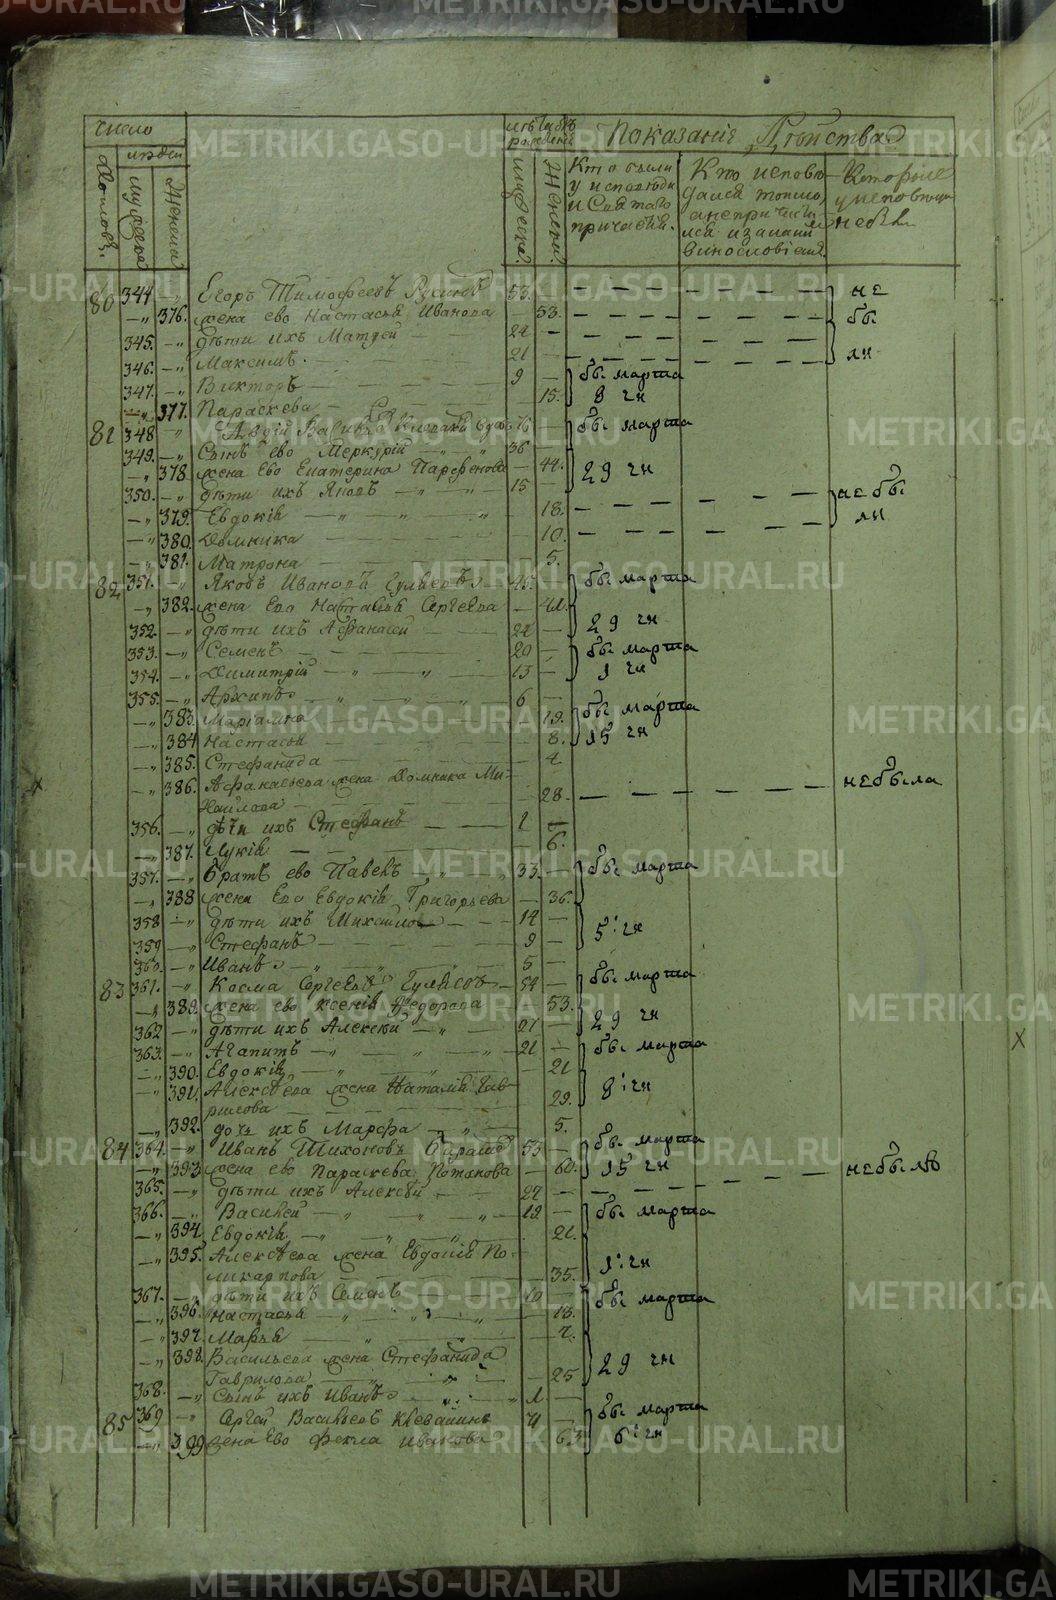 число
людей
домовъ
мужеска
женска
лѣтъ отъ рожденія
мужеска
женска
Показаніе Дѣйства
Кто были у исповеди и Святаго причастія.
Кто исповедался токмо, а не причастился и за каким винословіемъ
Которые у исповеди не были
80 344. Егоръ Тимофеевъ 53. не
376. жена ево Настасья Иванова 53. бы
345. дѣти ихъ Матфей 24
346. Максимъ 21 ли
347. Викторъ 9 бы: марта
377. Параскева 15. 8 чи
81 348 76 бы: марта
349. Сынъ ево Меркурій 36
378. жена Ево Екатерина Парфенова 44. 29 чи
350. дѣти ихъ Яковъ 15 не бы
379. Евдокія 18. ли
380. Домника 10.
381. Матрона 5.
82 351. Яковъ Ивановъ Гуляевъ 46 бы: марта
382. жена Ево Настасья Сергеева
352. дѣти ихъ Афанасей 22 29 чи
353. Семенъ 20 бы: марта
354. Димитрій 13 1 чи
355. Архипъ 6
383. 19. бы: марта
384 Настасья 8. 15 чи
385. Стефанида 4
386. Афанасьева жена Домника Ми-
хаилова 28. не была
356. дѣти ихъ Стефанъ 1
387. Лукія 6.
357. братъ ево Павелъ 33. бы: марта
388 жена Ево Евдокія Григорьева 36.
358 дѣти ихъ Михаило 14
359 Стефанъ 9 5: чи
360. Иванъ 5
83 361. Косма Сергеевъ Гуляевъ 54 бы: марта
389. жена ево Ксенія Федорова 53.
362 дѣти ихъ Алексей 27 29 чи
363. Агапитъ 21 бы: марта
390. Евдокія 21
391. Алексѣева жена Наталія Гав-
рилова 29. 8: чи
392. дочь ихъ Марфа 5.
84 364. Иванъ Тихоновъ 55 бы: марта
393 жена ево Параскева Потапова 60. 15 чи
365. дѣти ихъ Алексѣй 27 не былъ
366. Василей 19 бы: марта
394. Евдокія 21.
395. Алексѣева жена Евдокія По-
ликарпова 35. 1: чи
367. дѣти ихъ Семенъ 10 бы: марта
396. Настасья 13.
397. Марья 7.
398. Васильева жена Стефанида
Гаврилова 25 29 чи
368. Сынъ ихъ Иванъ 1
85 369 Сергей Васильевъ 71 бы: марта
399 жена Ево Фекла Иванова 63 6: чи
METRIKI.GASO-URAL.RU